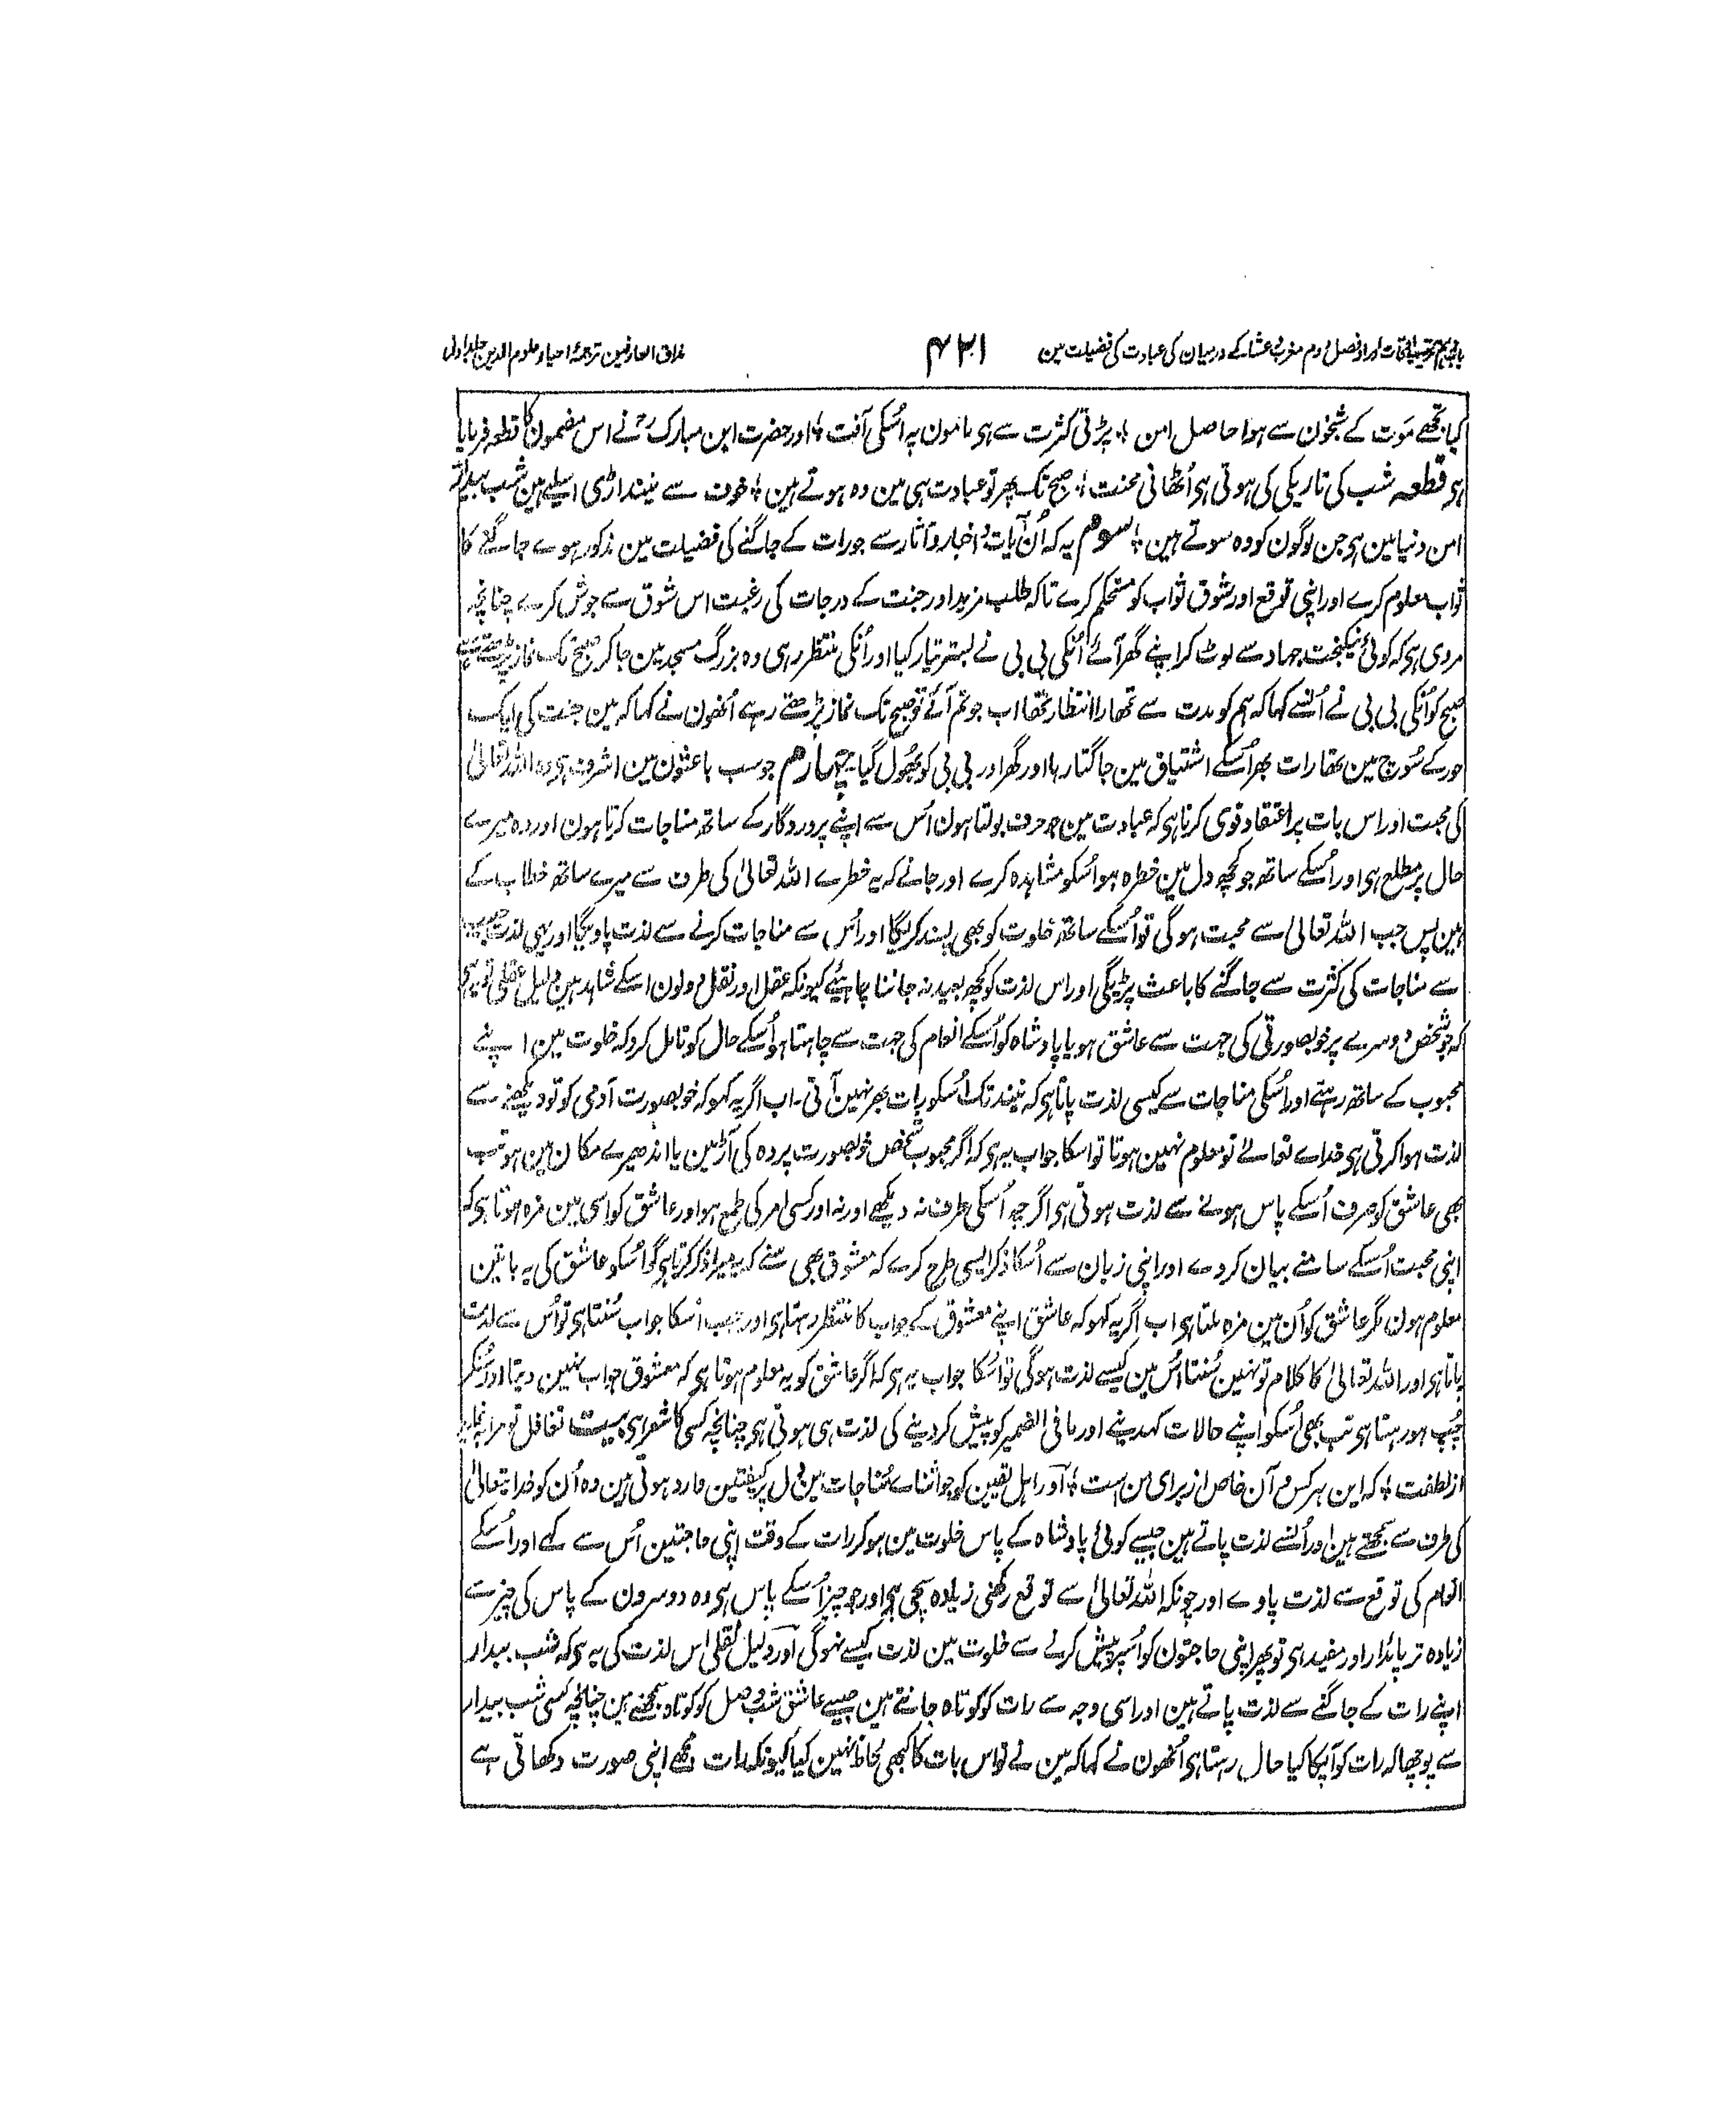 باب دہم ترتیب اوقات اوراد فصل دوم مغرب و عشا کے درمیان کی عبادت کی فضیلت مین ۴۲۱ مذاق العارفین ترجمۂ احیاء علوم الدین جلد اول
کیا تجھے موت کے شبخون سے ہوا حاصل امن ؛ پڑتی کثرت سے ہی مامون پہ اُسکی آفت ؛ اور حضرت ابن مبارک رح نے اس مضمون کا قطعہ فرمایا
ہی قطعہ شب کی تاریکی کی ہوتی ہی اُٹھانی محنت ؛ صبح تک پھر تو عبادت ہی مین وہ ہوتے ہین ؛ خوف سے نیند اڑی اسلیے ہین شب بیدار
امن دنیا مین ہی جن لوگون کو وہ سوتے ہین ؛ سوم یہ کہ اُن آیات و اخبار و آثار سے جو رات کے جاگنے کی فضیلت مین مذکور ہوے جاگنے کا
ثواب معلوم کرے اور اپنی توقع اور شوق ثواب کو مستحکم کرے تاکہ طلب مزید اور جنت کے درجات کی رغبت اس شوق سے جوش کرے چنانچہ
مروی ہی کہ کوئی نیکبخت جہاد سے لوٹ کر اپنے گھر آئے اُنکی بی بی نے بستر تیار کیا اور اُنکی منتظر رہی وہ بزرگ مسجد مین جا کر صبح تک نماز پڑھتے رہے
صبح کو اُنکی بی بی نے اُنسے کہا کہ ہم کو مدت سے تمھارا انتظار تھا اب جو تم آئے تو صبح تک نماز پڑھتے رہے اُنھون نے کہا کہ مین جنت کی ایک
حور کے سوچ مین تھا رات بھر اُسکے اشتیاق مین جاگتا رہا اور گھر اور بی بی کو بھول گیا۔ چہارم جو سب باعثون مین اشرف ہی وہ اللہ تعالیٰ
کی محبت اور اس بات پر اعتقاد قوی کرنا ہی کہ عبادت مین جو حرف بولتا ہون اُس سے اپنے پروردگار کے ساتھ مناجات کرتا ہون اور وہ میرے
حال پر مطلع ہی اور اُسکے ساتھ جو کچھ دل مین خطرہ ہو اُسکو مشاہدہ کرے اور جانے کہ یہ خطرے اللہ تعالیٰ کی طرف سے میرے ساتھ خطاب کے
ہین پس جب اللہ تعالیٰ سے محبت ہوگی تو اُسکے ساتھ خلوت کو بھی پسند کریگا اور اُس سے مناجات کرنے سے لذت پاویگا اور یہی لذت حبیب
سے مناجات کی کثرت سے جاگنے کا باعث پڑیگی اور اس لذت کو کچھ بعید نہ جاننا چاہیئے کیونکہ عقل اور نقل دونون اسکے شاہد ہین دلیل عقلی تو یہ ہی
کہ جو شخص دوسرے پر خوبصورتی کی جہت سے عاشق ہو یا پادشاہ کو اُسکے انعام کی جہت سے چاہتا ہو اُسکے حال کو تامل کرو کہ خلوت مین اپنے
محبوب کے ساتھ رہنے اور اُسکی مناجات سے کیسی لذت پاتا ہی کہ نیند تک اُسکو رات بھر نہین آتی۔ اب اگر یہ کہو کہ خوبصورت آدمی کو تو دیکھنے سے
لذت ہوا کرتی ہی خداے تعالےٰ تو معلوم نہین ہوتا تو اسکا جواب یہ ہی کہ اگر محبوب شخص خوبصورت پردہ کی آڑ مین یا اندھیرے مکان مین ہو تب
بھی عاشق کو صرف اُسکے پاس ہونے سے لذت ہوتی ہی اگرچہ اُسکی طرف نہ دیکھے اور نہ اور کسی امر کی طمع ہو اور عاشق کو اسی مین مزہ ہوتا ہی کہ
اپنی محبت اُسکے سامنے بیان کردے اور اپنی زبان سے اُسکا ذکر ایسی طرح کرے کہ معشوق بھی سنے کہ یہ میرا ذکر کرتا ہی گو اُسکو عاشق کی یہ باتین
معلوم ہون مگر عاشق کو اُن مین مزہ ملتا ہی اب اگر یہ کہو کہ عاشق اپنے معشوق کے جواب کا منتظر رہتا ہی اور جب اُسکا جواب سُنتا ہی تو اُس سے لذت
پاتا ہی اور اللہ تعالیٰ کا کلام تو نہین سُنتا اُس مین کیسے لذت ہوگی تو اُسکا جواب یہ ہی کہ اگر عاشق کو یہ معلوم ہوتا ہی کہ معشوق جواب نہین دیتا اور سُنکر
چُپ ہو رہتا ہی تب بھی اُسکو اپنے حالات کہدینے اور مافی الضمیر کو پیش کر دینے کی لذت ہی ہوتی ہی چنانچہ کسی کا شعر ہی بیت تغافل تو مرا
از لطفت ؛ کہ این بہر کس و آن خاص از برای من ست ؛ اور اہل یقین کو جو اثناے مناجات مین دل پر کیفیتین وارد ہوتی ہین وہ اُن کو خدا تعالیٰ
کی طرف سے سمجھتے ہین اور اُنسے لذت پاتے ہین جیسے کوئی پادشاہ کے پاس خلوت مین ہو کر رات کے وقت اپنی حاجتین اُس سے کہے اور اُسکے
انعام کی توقع سے لذت پاوے اور چونکہ اللہ تعالیٰ سے توقع رکھنی زیادہ سچی ہی اور جو چیز اُسکے پاس ہی وہ دوسرون کے پاس کی چیز سے
زیادہ تر پائدار اور مفید ہی تو پھر اپنی حاجتون کو اُسپر پیش کرنے سے خلوت مین لذت کیسے نہوگی اور دلیل نقلی اس لذت کی یہ ہی کہ شب بیدار
اپنے رات کے جاگنے سے لذت پاتے ہین اور اسی وجہ سے رات کو کوتاہ جانتے ہین جیسے عاشق شب وصل کو کوتاہ سمجھتے ہین چنانچہ کسی شب بیدار
سے پوچھا کہ رات کو آپکا کیا حال رہتا ہی اُنھون نے کہا کہ مین نے تو اس بات کا کبھی لحاظ نہین کیا کیونکہ رات مجھے اپنی صورت دکھاتی ہے